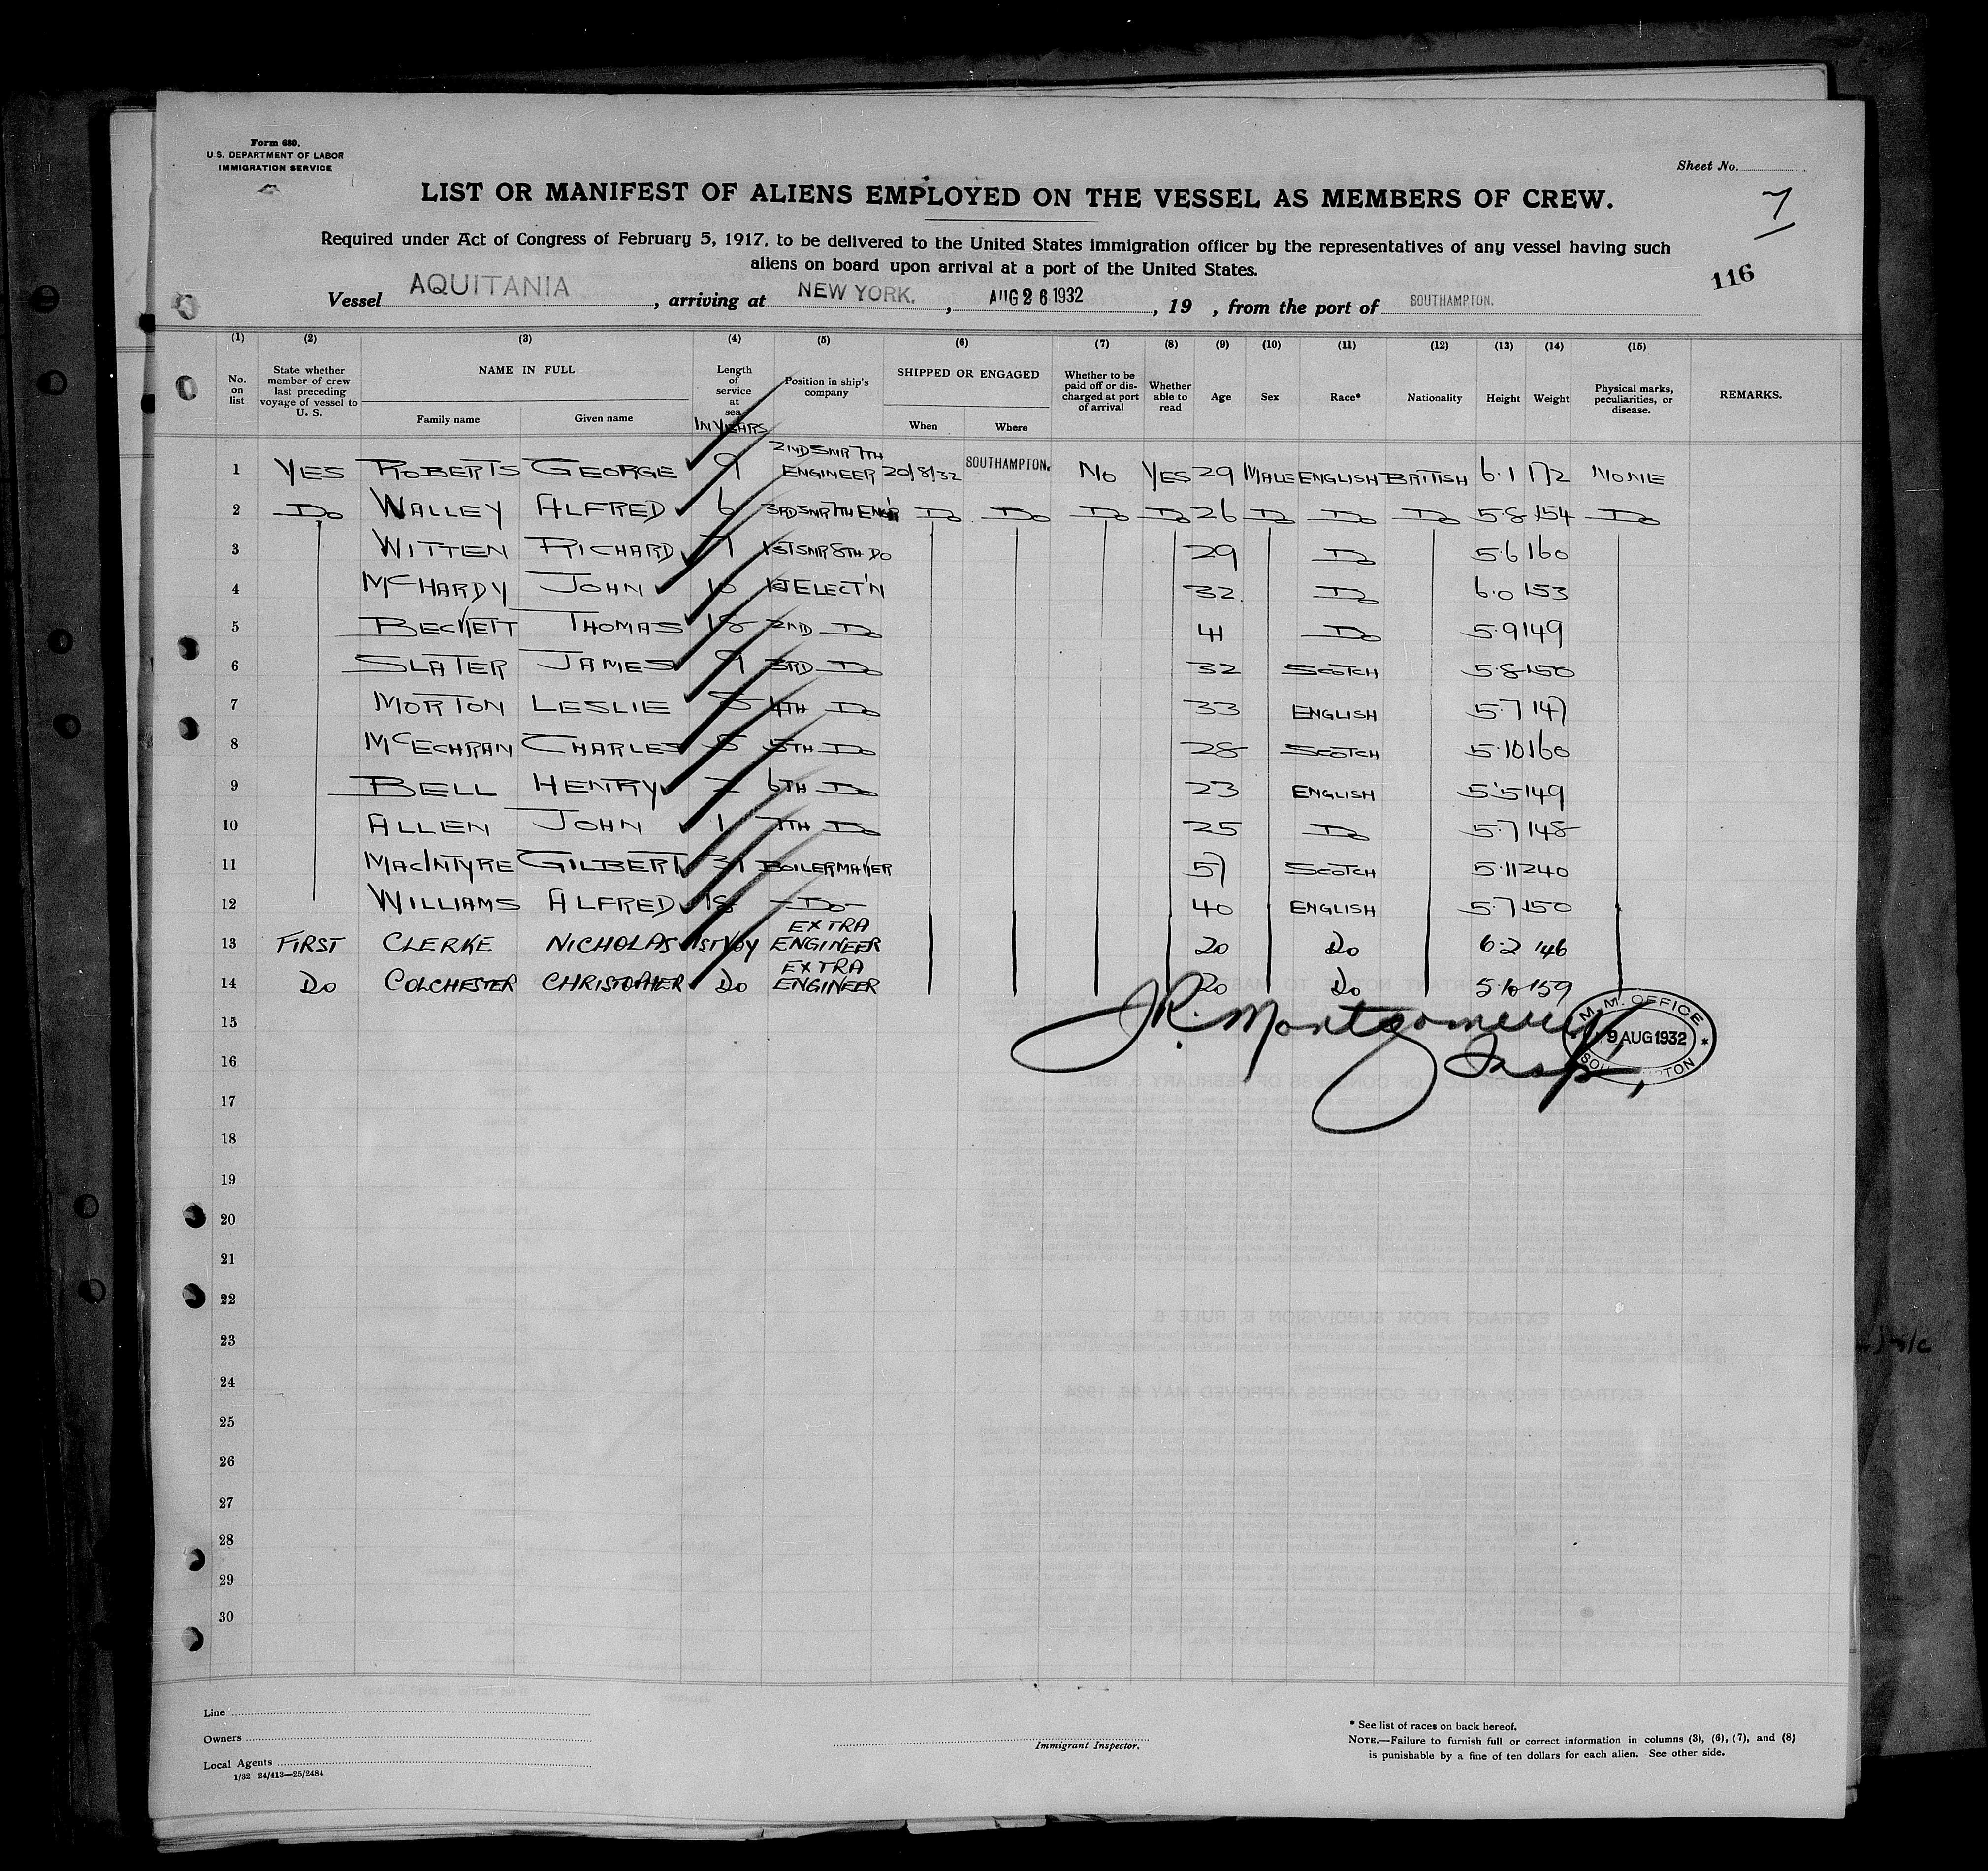 Form 680.
U.S. DEPARTMENT OF LABOR
IMMIGRATION SERVICE
Sheet No.
LIST OR MANIFEST OF ALIENS EMPLOYED ON THE VESSEL AS MEMBERS OF CREW.
7
Required under Act of Congress of February 5, 1917, to be delivered to the United States immigration officer by the representatives of any vessel having such
aliens on board upon arrival at a port of the United States.
116
Vessel AQUITANIA, arriving at NEW YORK., AUG 26 1932, 19 , from the port of SOUTHAMPTON.
(1) (2) (3) (4) (5) (6) (7) (8) (9) (10) (11) (12) (13) (14) (15)
No. on list State whether member of crew last preceding voyage of vessel to U. S. NAME IN FULL Family name Given name Length of service at sea IN YEARS Position in ship's company SHIPPED OR ENGAGED When Where Whether to be paid off or discharged at port of arrival Whether able to read Age Sex Race* Nationality Height Weight Physical marks, peculiarities, or disease. REMARKS.
1 YES ROBERTS GEORGE 9 2ND SNR 7TH ENGINEER 20/8/32 SOUTHAMPTON. NO YES 29 MALE ENGLISH BRITISH 6.1 172 NONE
2 Do WALLEY ALFRED 6 3RD SNR 7TH ENG'R Do Do Do Do 26 Do Do Do 5.8 154 Do
3 WITTEN RICHARD 7 1ST SNR 8TH DO 29 Do 5.6 160
4 McHARDY JOHN 10 1ST ELECT'N 32 Do 6.0 153
5 BECKETT THOMAS 18 2ND Do 41 Do 5.9 149
6 SLATER JAMES 9 3RD Do 32 SCOTCH 5.8 150
7 MORTON LESLIE 8 4TH Do 33 ENGLISH 5.7 147
8 McECHRAN CHARLES 5 5TH Do 28 SCOTCH 5.10 160
9 BELL HENRY 2 6TH Do 23 ENGLISH 5.5 149
10 ALLEN JOHN 1 7TH Do 25 Do 5.7 148
11 MACINTYRE GILBERT 31 BOILERMAKER 57 SCOTCH 5.11 240
12 WILLIAMS ALFRED 18 Do 40 ENGLISH 5.7 150
13 FIRST CLERKE NICHOLAS 1ST VOY EXTRA ENGINEER 20 Do 6.2 146
14 Do COLCHESTER CHRISTOPHER Do EXTRA ENGINEER 20 Do 5.10 159
15
J.R. Montgomery
Insp.
M.M. OFFICE
9 AUG 1932
SOUTHAMPTON
16
17
18
19
20
21
22
23
24
25
26
27
28
29
30
Line
Owners
Local Agents
1/32 24/413—25/2484
Immigrant Inspector.
* See list of races on back hereof.
NOTE.—Failure to furnish full or correct information in columns (3), (6), (7), and (8)
is punishable by a fine of ten dollars for each alien. See other side.